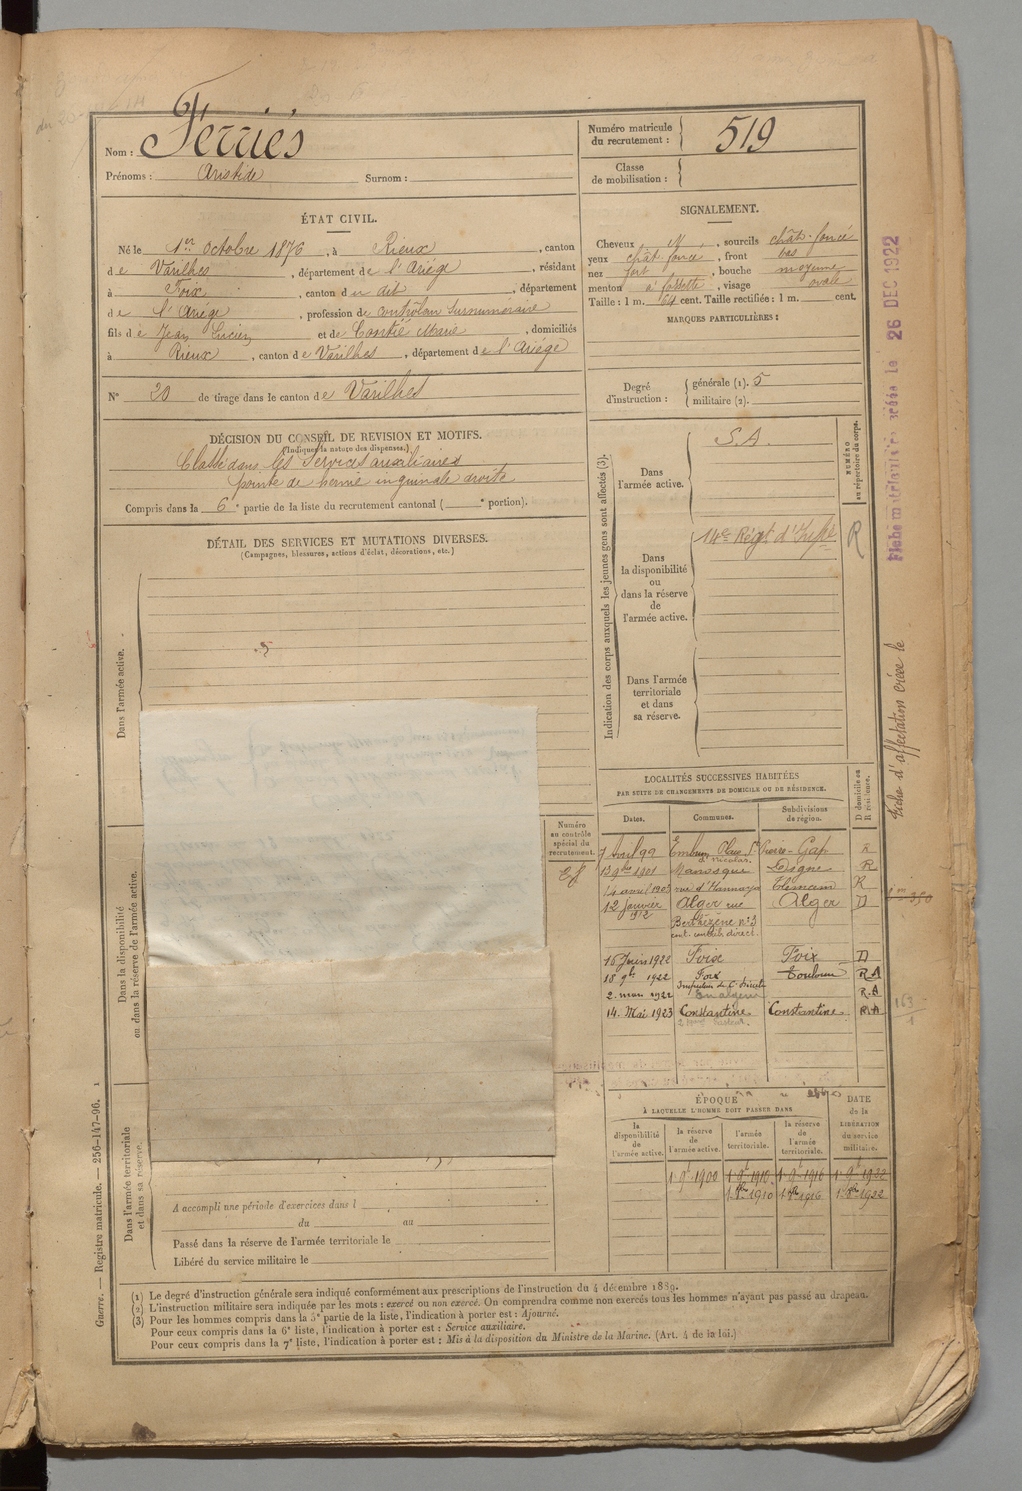 Nom : Ferriés
Prénoms : Aristide Surnom :
Numéro matricule du recrutement : 519
Classe de mobilisation :
ÉTAT CIVIL.
Né le 1er Octobre 1876, à Rieux, canton
de Varilhes, département de l'Ariège, résidant
à Foix, canton du dit, département
de l'Ariège, profession de contrôleur Surnuméraire
fils de Jean Lucien et de Marie, domiciliés
à Rieux, canton de Varilhes, département de l'Ariège
N° 20 de tirage dans le canton de Varilhes
DÉCISION DU CONSEIL DE REVISION ET MOTIFS.
(Indiquer la nature des dispenses.)
Classé dans les Services auxiliaires
pointe de hernie inguinale droite
Compris dans la 6e partie de la liste du recrutement cantonal ( e portion).
DÉTAIL DES SERVICES ET MUTATIONS DIVERSES.
(Campagnes, blessures, actions d'éclat, décorations, etc.)
Dans l'armée active.
Dans la disponibilité
ou dans la réserve de l'armée active.
Dans l'armée territoriale
et dans sa réserve.
Numéro
au contrôle
spécial du
recrutement.
A accompli une période d'exercices dans l
du au
Passé dans la réserve de l'armée territoriale le
Libéré du service militaire le
SIGNALEMENT.
Cheveux , sourcils chât. foncé
yeux chât. foncé, front bas
nez fort, bouche moyenne
menton à fossette, visage ovale
Taille : 1 m. 64 cent. Taille rectifiée : 1 m. cent.
MARQUES PARTICULIÈRES :
Degré d'instruction : générale (1). 5
militaire (2).
Indication des corps auxquels les jeunes gens sont affectés (3).
Dans
l'armée active.
S.A.
NUMÉRO
au répertoire du corps.
Dans
la disponibilité
ou
dans la réserve
de
l'armée active.
14e Régt d'Inf
R
Dans l'armée
territoriale
et dans
sa réserve.
LOCALITÉS SUCCESSIVES HABITÉES
PAR SUITE DE CHANGEMENTS DE DOMICILE OU DE RÉSIDENCE.
D domicile ou
R résidence.
Dates. Communes. Subdivisions de région.
7 Avril 99 Embrun Gap R
13 9bre 1901 Manosque Digne R
14 avril 1903 Tlemcen R
12 Janvier 1912 Alger rue Alger D
Berthézène n° 3
cont. contrib. direct.
16 Juin 1922 Foix Foix D
18 9b 1922 Foix Toulouse R A
2 mars 1922 R.A
14 Mai 1923 Constantine Constantine R.A
ÉPOQUE
À LAQUELLE L'HOMME DOIT PASSER DANS
DATE
de la
LIBÉRATION
du service
militaire.
la disponibilité de l'armée active.
la réserve de l'armée active.
l'armée territoriale.
la réserve de l'armée territoriale.
1 9b 1900 1 9b 1910 1 9b 1916 1 9b 1922
1910 1916 1922
Fiche matriculaire créée le 26 DEC 1922
Fiche d'affectation créée le
Guerre. — Registre matricule. — 256-147-96.
(1) Le degré d'instruction générale sera indiqué conformément aux prescriptions de l'instruction du 4 décembre 1889.
(2) L'instruction militaire sera indiquée par les mots : exercé ou non exercé. On comprendra comme non exercés tous les hommes n'ayant pas passé au drapeau.
(3) Pour les hommes compris dans la 5e partie de la liste, l'indication à porter est : Ajourné.
Pour ceux compris dans la 6e liste, l'indication à porter est : Service auxiliaire.
Pour ceux compris dans la 7e liste, l'indication à porter est : Mis à la disposition du Ministre de la Marine. (Art. 4 de la loi.)